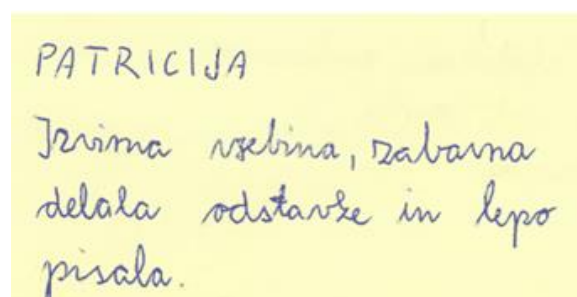 PATRICIJA
Izvirna vsebina, zabavna
delala odstavke in lepo
pisala.